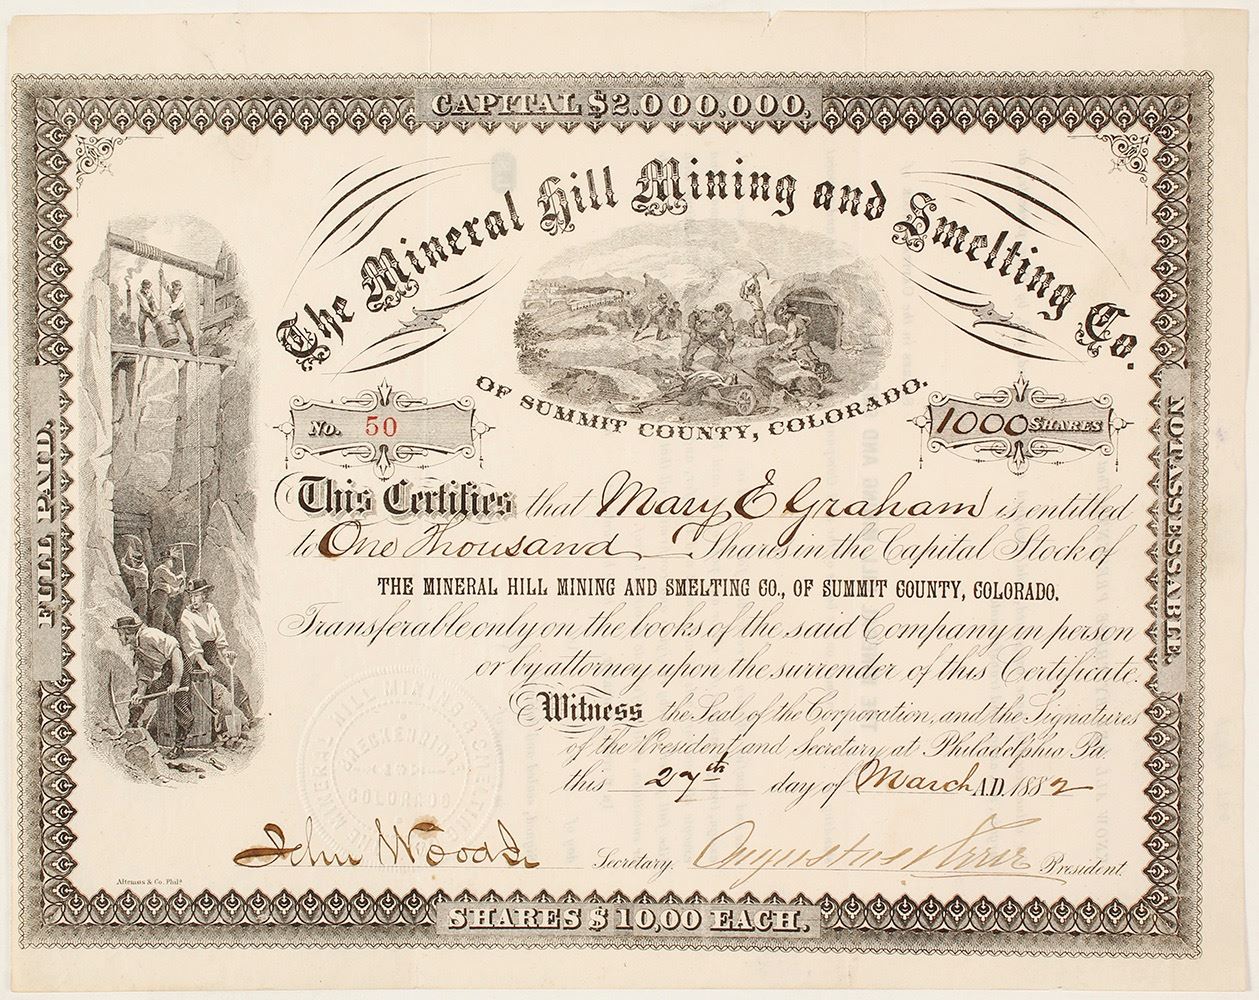 CAPITAL $2.000,000.
The Mineral Hill Mining and Smelting Co.
OF SUMMIT COUNTY, COLORADO.
No. 50
1000 SHARES
FULL PAID.
NOT ASSESSABLE.
This Certifies that Mary E Graham is entitled
to One Thousand Shares in the Capital Stock of
THE MINERAL HILL MINING AND SMELTING CO., OF SUMMIT COUNTY, COLORADO.
Transferable only on the books of the said Company in person
or by attorney upon the surrender of this Certificate.
Witness the Seal of the Corporation, and the Signatures
of the President and Secretary at Philadelphia Pa.
this 27th day of March A.D. 1882
MINERAL HILL MINING & SMELTING
BRECKENRIDGE
COLORADO
John Secretary. Augustus President.
Altemus & Co. Phila.
SHARES $10,00 EACH.